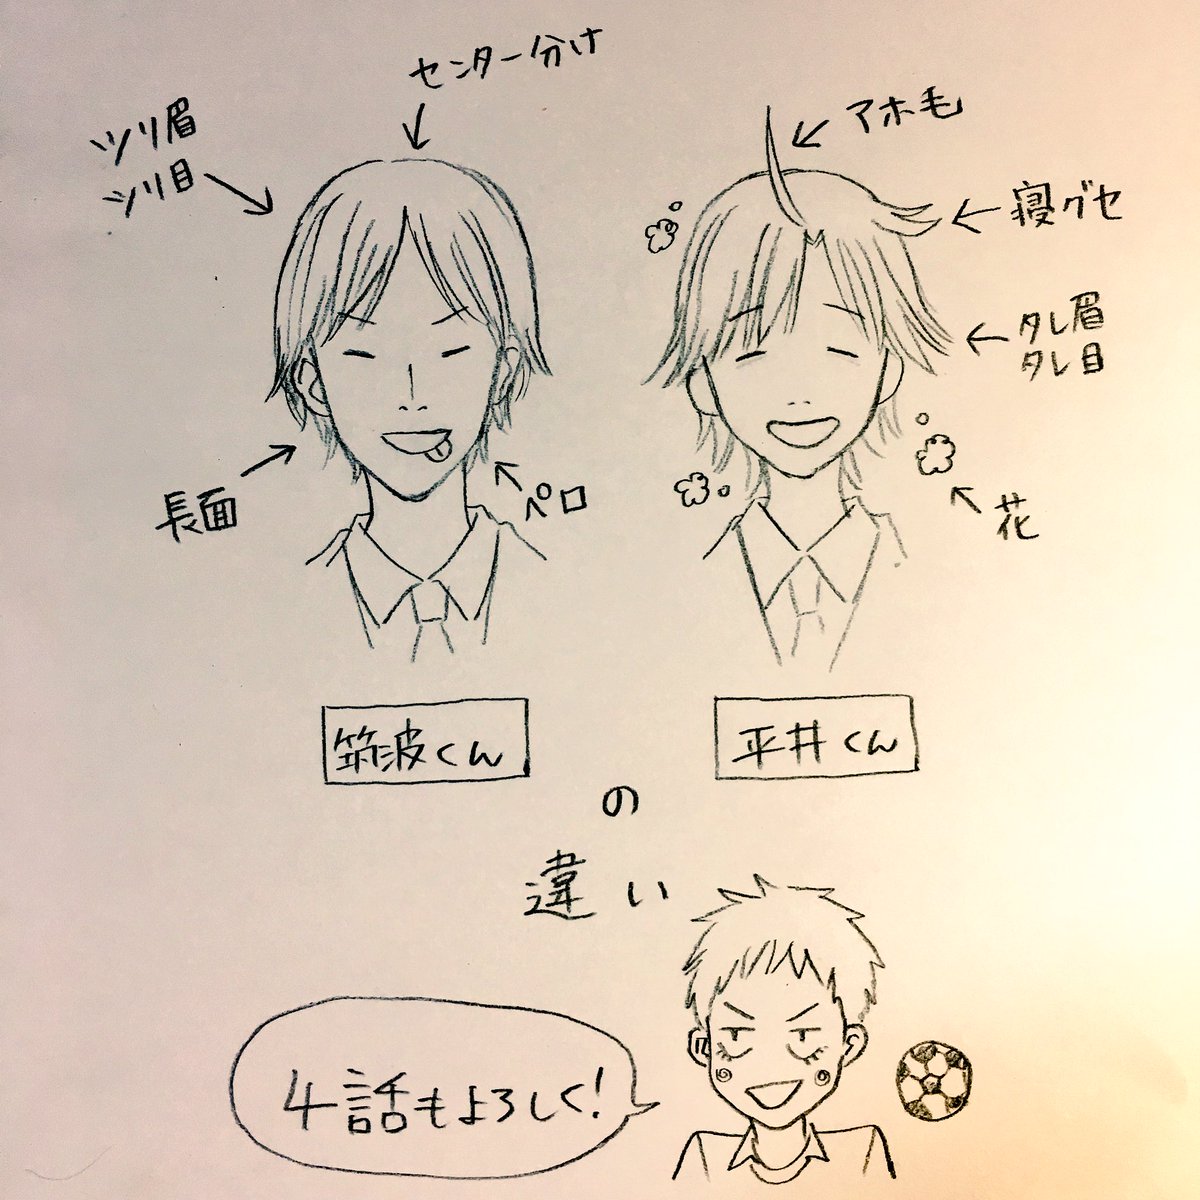 センター分け
ツリ眉
ツリ目
長面
ペロ
アホ毛
寝グセ
タレ眉
タレ目
花
筑波くん
平井くん
の
違い
4話もよろしく!